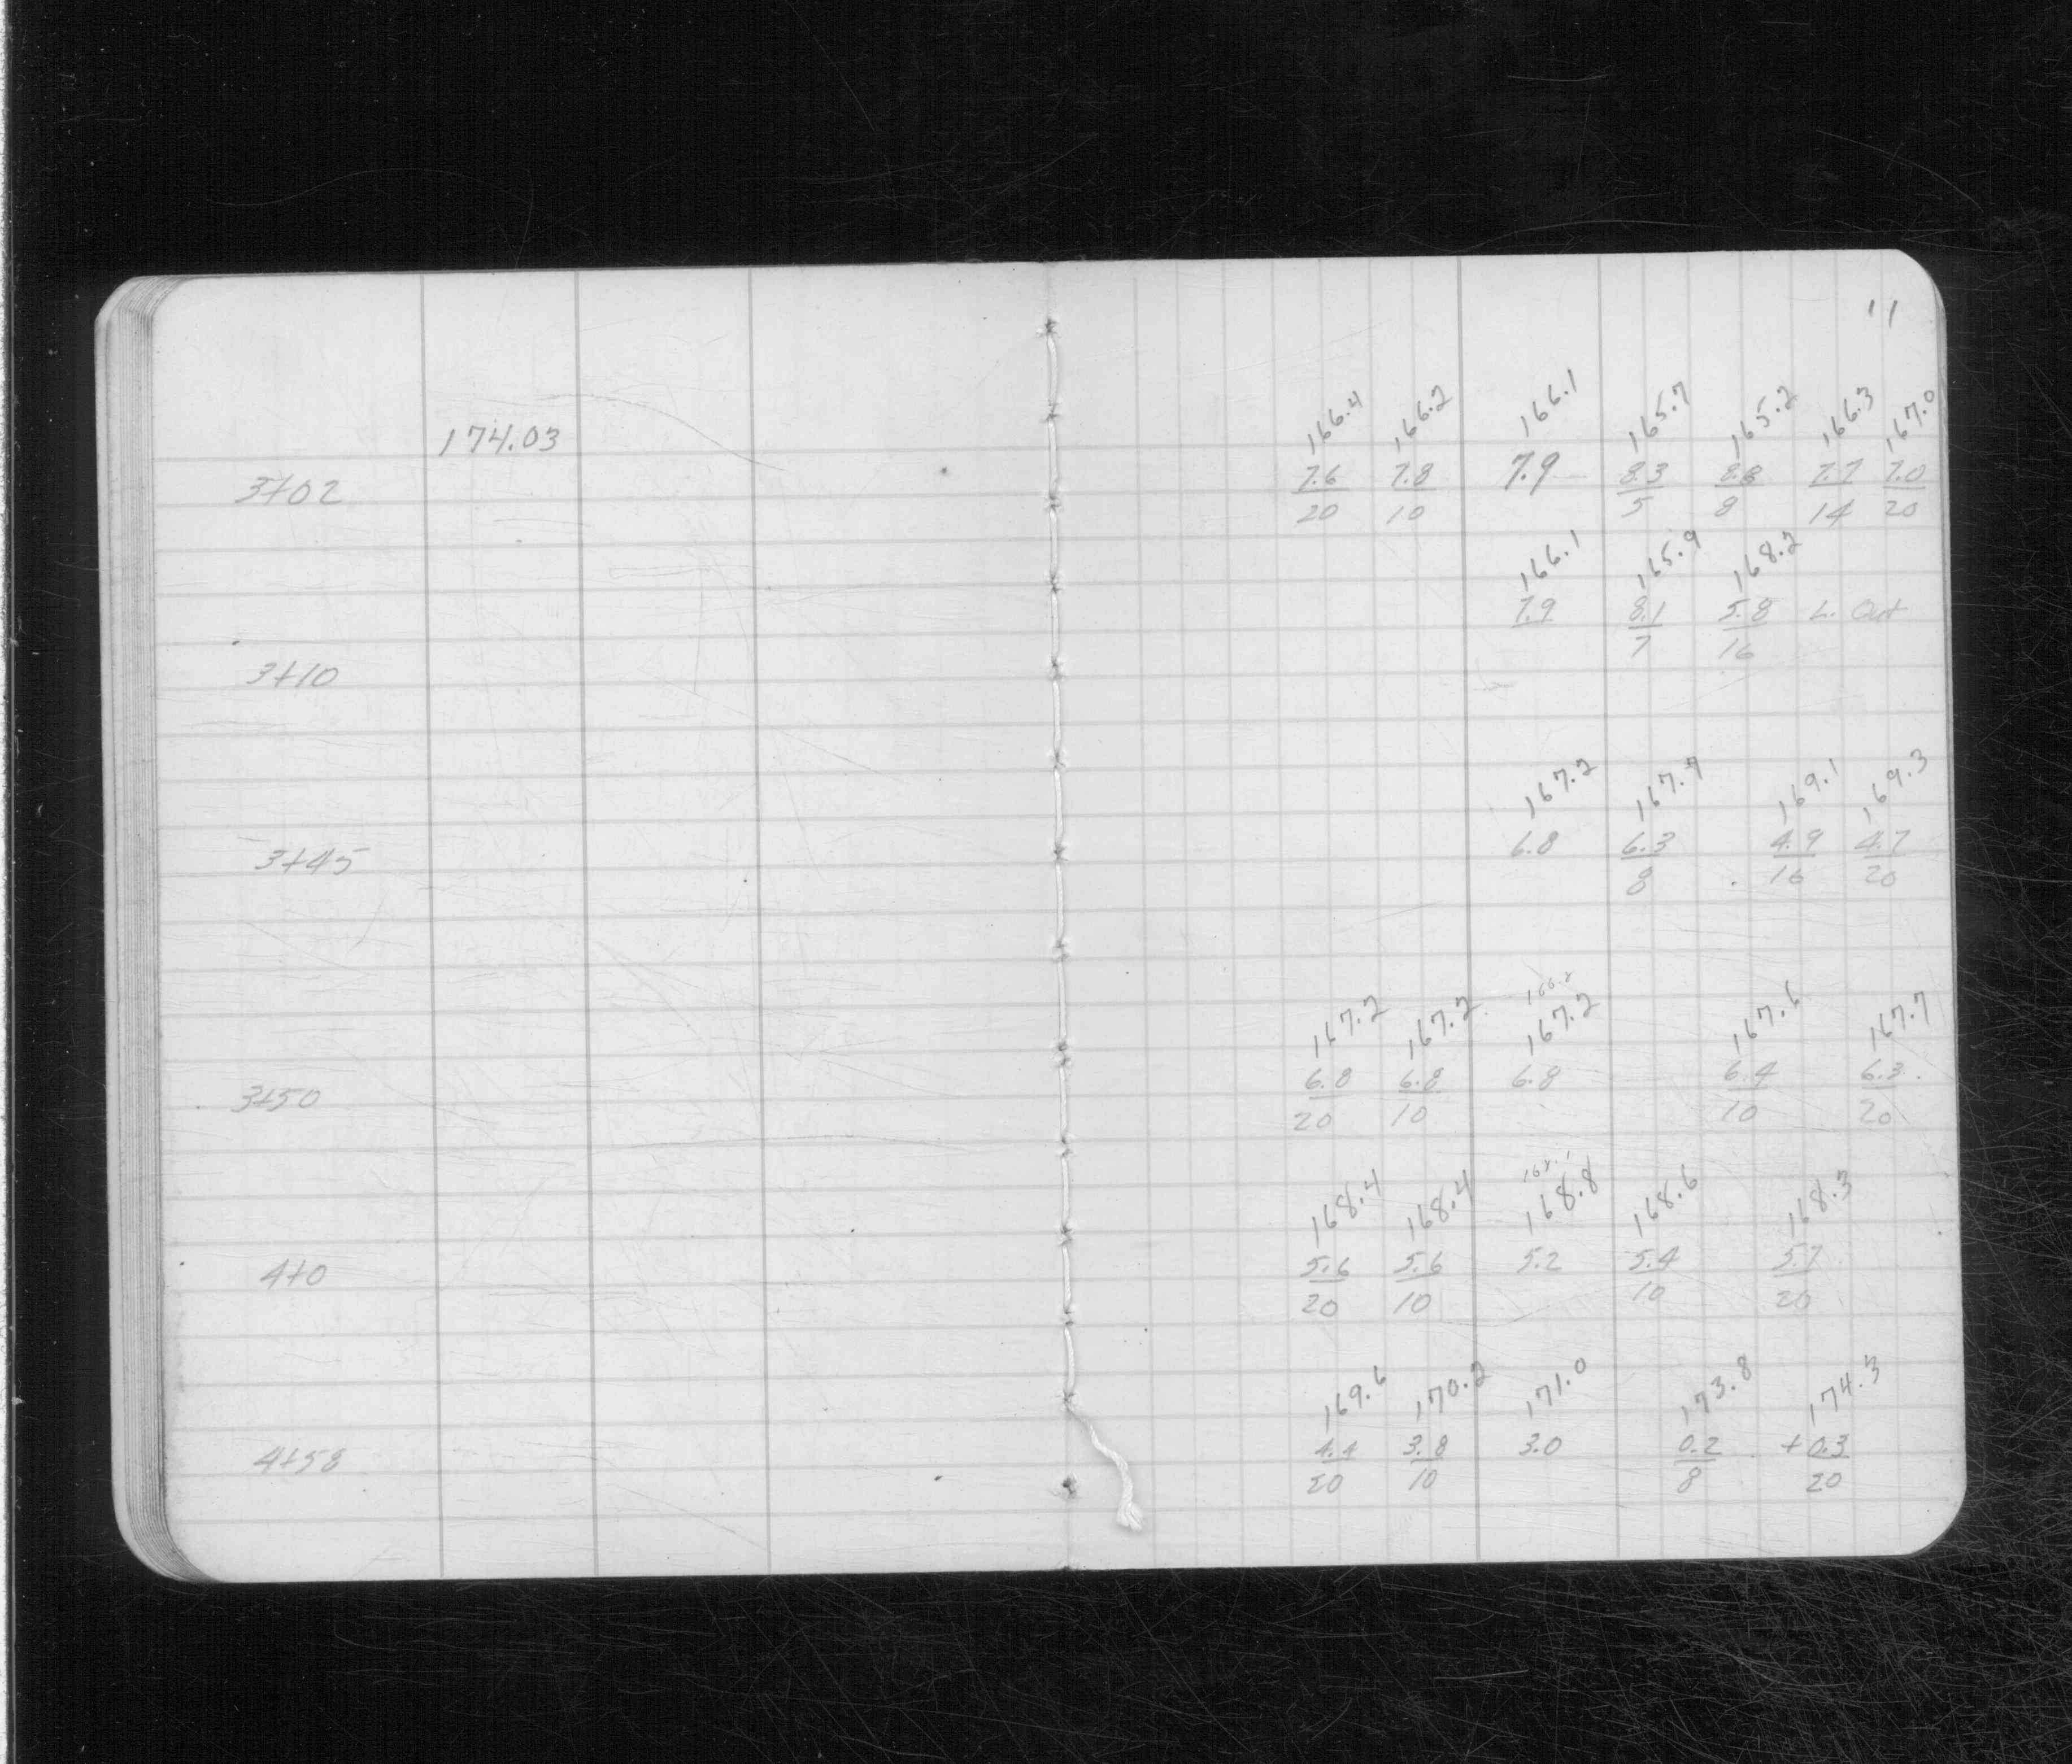 11
174.03
166.4 166.2 166.1 165.7 165.2 166.3 167.0
3+02 7.6 7.8 7.9 8.3 8.8 7.7 7.0
20 10 5 8 14 20
166.1 165.9 168.2
7.9 8.1 5.8 L. Out
7 16
3+10
167.2 167.7 169.1 169.3
3+45 6.8 6.3 4.9 4.7
8 16 20
166.2
167.2 167.2 167.2 167.6 167.7
3+50 6.8 6.8 6.8 6.4 6.3
20 10 10 20
168.4 168.4 168.8 168.6 168.3
4+0 5.6 5.6 5.2 5.4 5.7
20 10 10 20
169.6 170.2 171.0 173.8 174.3
4+58 4.4 3.8 3.0 0.2 +0.3
20 10 8 20